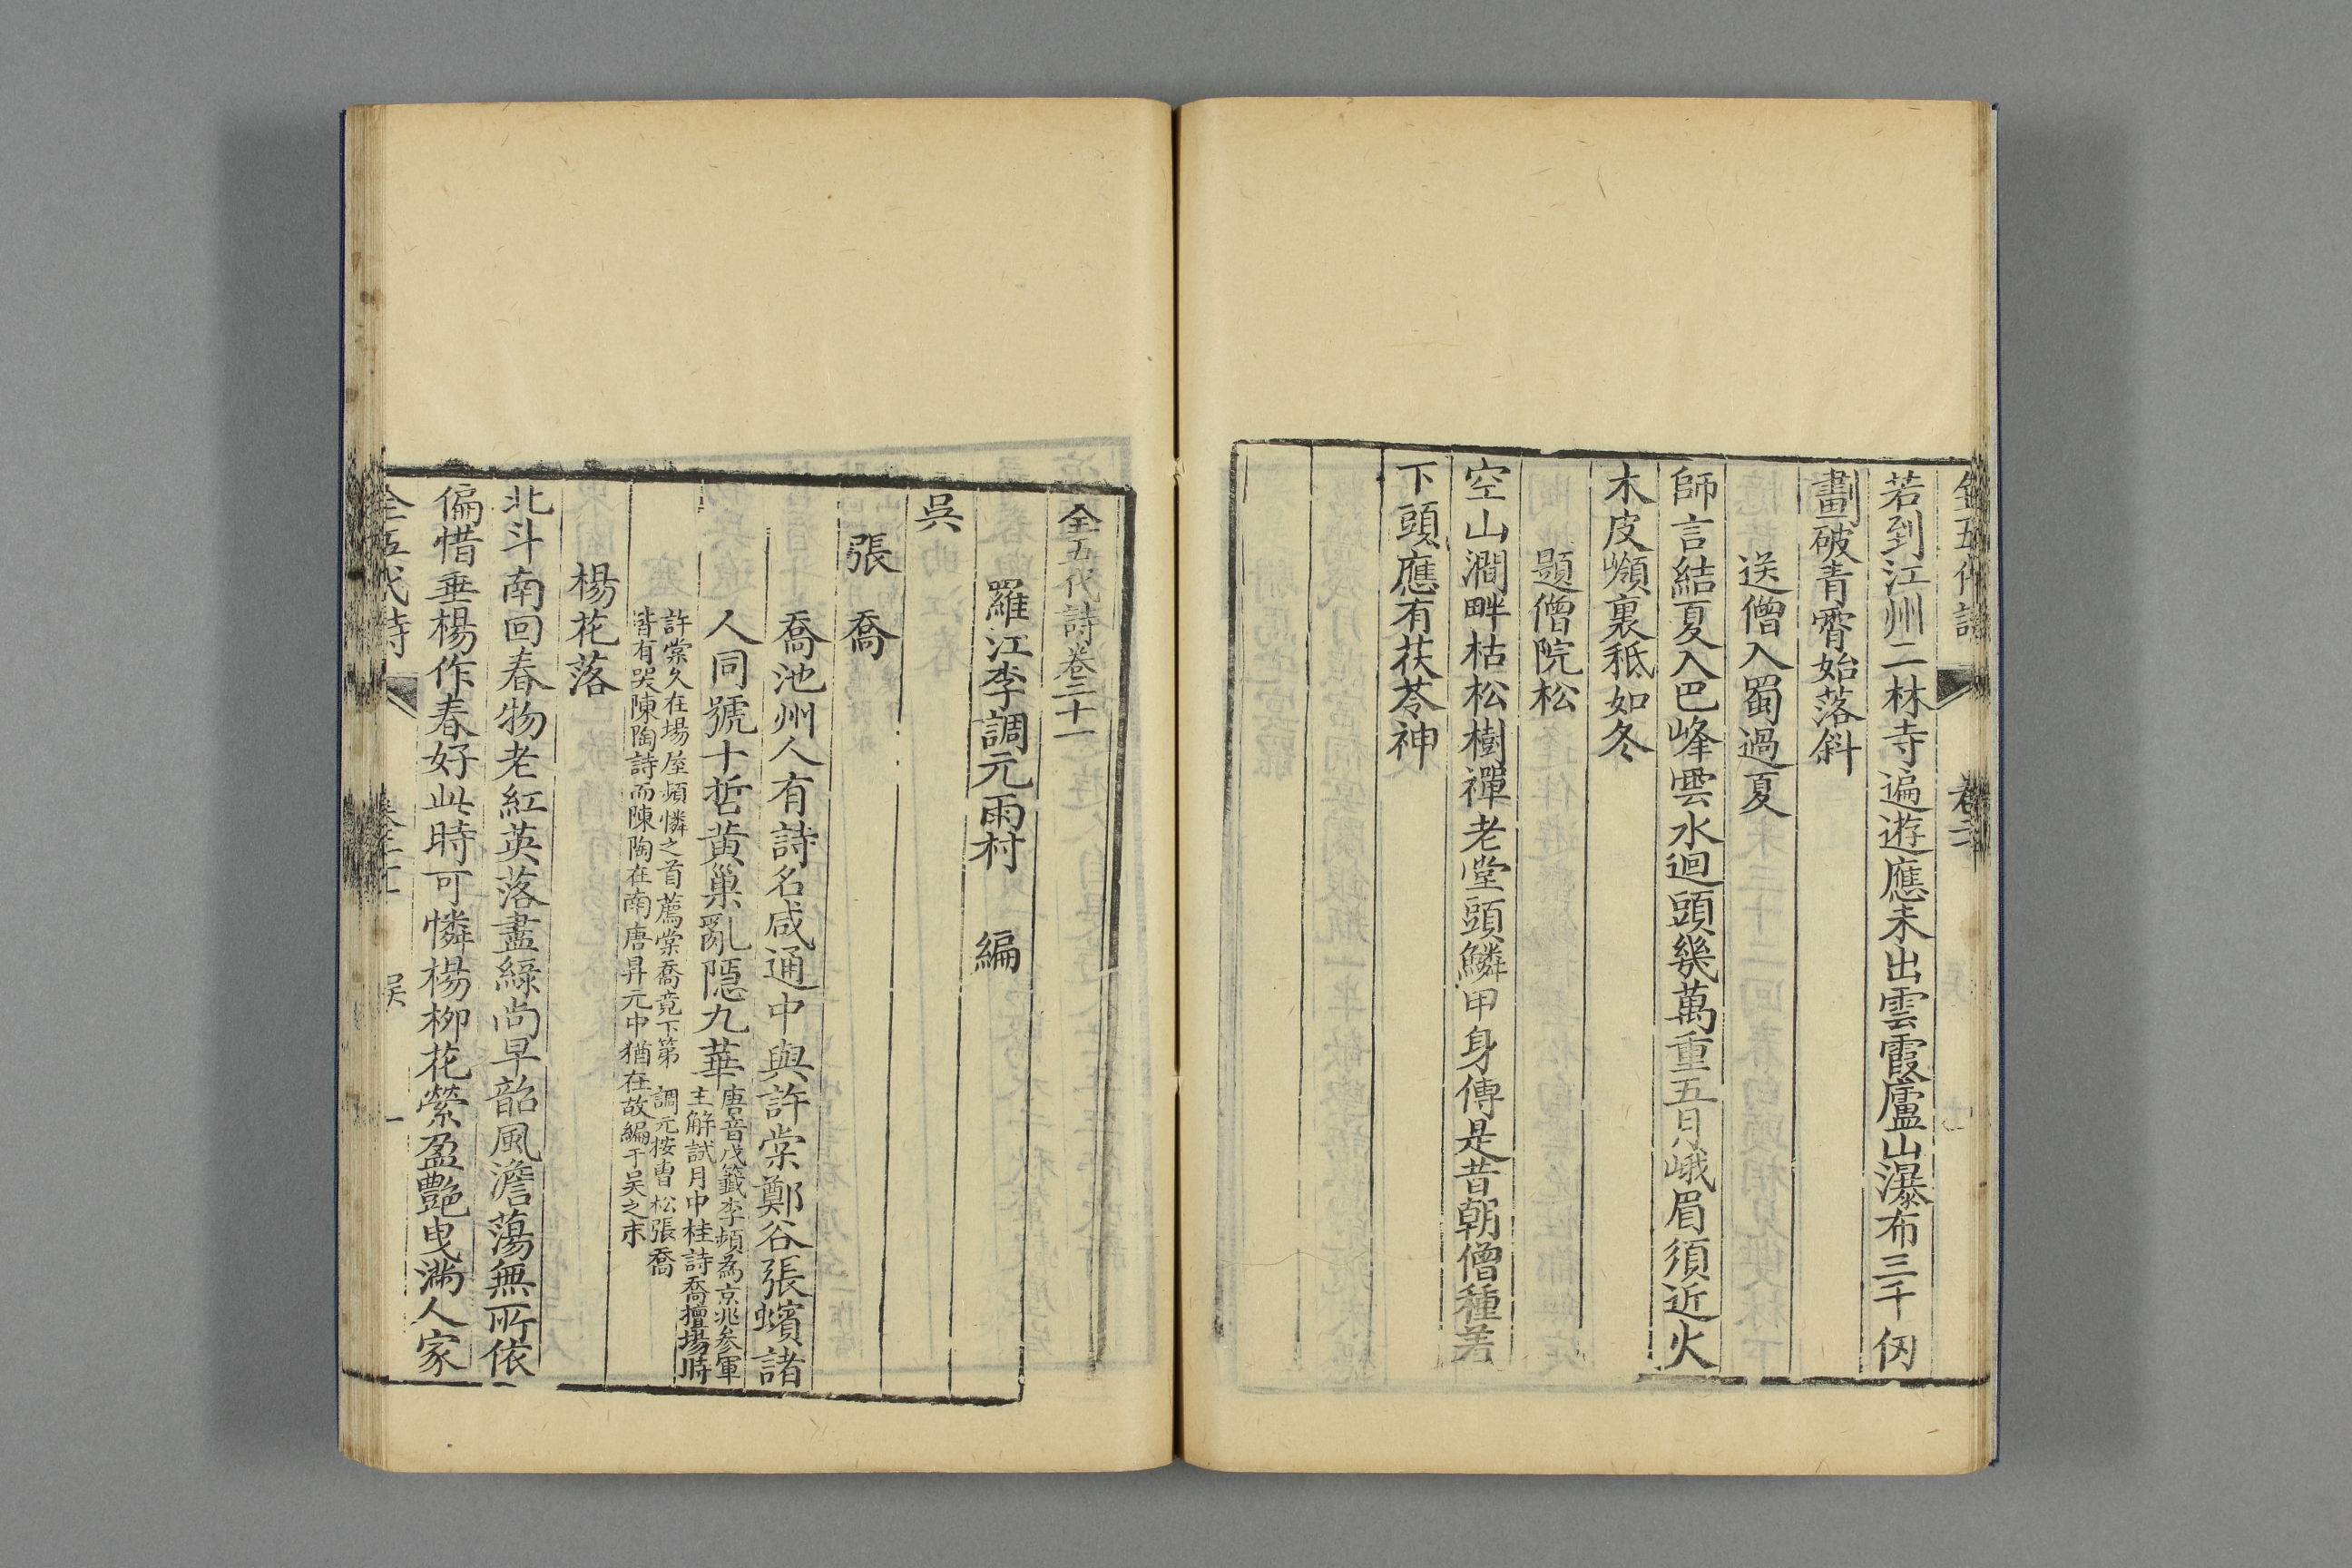 全五代詩
卷二十
若到江州二林寺遍遊應未出雲霞廬山瀑布三千仞
畫破青霄始落斜
送僧入蜀過夏
師言結夏入巴峰雲水迴頭幾萬重五月峨眉須近火
木皮嶺裏秪如冬
題僧院松
空山澗畔枯松樹禪老堂頭鱗甲身傳是昔朝僧種著
下頭應有茯苓神
全五代詩卷二十一
羅江李調元雨村 編
吳
張 喬
喬池州人有詩名咸通中與許棠鄭谷張蠙諸
人同號十哲黃巢亂隱九華
唐音戊籖李頻為京兆參軍
主解試月中桂詩喬擅場時
許棠久在場屋頻憐之首薦棠喬竟下第 調元按曹松張喬
皆有哭陳陶詩而陳陶在南唐昇元中猶在故編于吳之末
楊花落
北斗南回春物老紅英落盡綠尚早韶風澹蕩無所依
偏惜垂楊作春好此時可憐楊柳花縈盈艷曳滿人家
全五代詩
吳
一